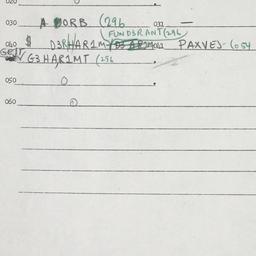 020
030 A DORB (296 031 —
FUND3RANT (296
040 D3RHAR1M 041 PAXVES- (054
G3HAR1MT (256
050 0
060 0